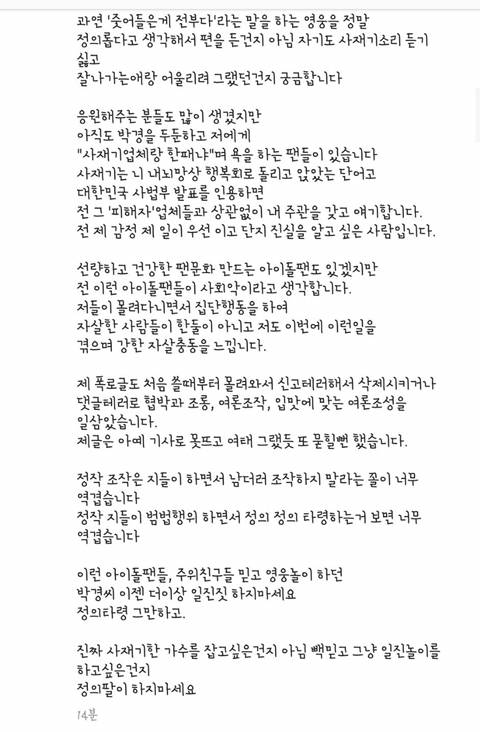 과연 '줏어들은게 전부다'라는 말을 하는 영웅을 정말
정의롭다고 생각해서 편을 든건지 아님 자기도 사재기소리 듣기
싫고
잘나가는애랑 어울리려 그랬던건지 궁금합니다
응원해주는 분들도 많이 생겼지만
아직도 박경을 두둔하고 저에게
"사재기업체랑 한패냐"며 욕을 하는 팬들이 있습니다
사재기는 니 내뇌망상 행복회로 돌리고 앉았는 단어고
대한민국 사법부 발표를 인용하면
전 그 '피해자'업체들과 상관없이 내 주관을 갖고 얘기합니다.
전 제 감정 제 일이 우선 이고 단지 진실을 알고 싶은 사람입니다.
선량하고 건강한 팬문화 만드는 아이돌팬도 있겠지만
전 이런 아이돌팬들이 사회악이라고 생각합니다.
저들이 몰려다니면서 집단행동을 하여
자살한 사람들이 한둘이 아니고 저도 이번에 이런일을
겪으며 강한 자살충동을 느낍니다.
제 폭로글도 처음 쓸때부터 몰려와서 신고테러해서 삭제시키거나
댓글테러로 협박과 조롱, 여론조작, 입맛에 맞는 여론조성을
일삼았습니다.
제글은 아예 기사로 못뜨고 여태 그랬듯 또 묻힐뻔 했습니다.
정작 조작은 지들이 하면서 남더러 조작하지 말라는 꼴이 너무
역겹습니다
정작 지들이 범법행위 하면서 정의 정의 타령하는거 보면 너무
역겹습니다
이런 아이돌팬들, 주위친구들 믿고 영웅놀이 하던
박경씨 이젠 더이상 일진짓 하지마세요
정의타령 그만하고.
진짜 사재기한 가수를 잡고싶은건지 아님 빽믿고 그냥 일진놀이를
하고싶은건지
정의팔이 하지마세요
14분